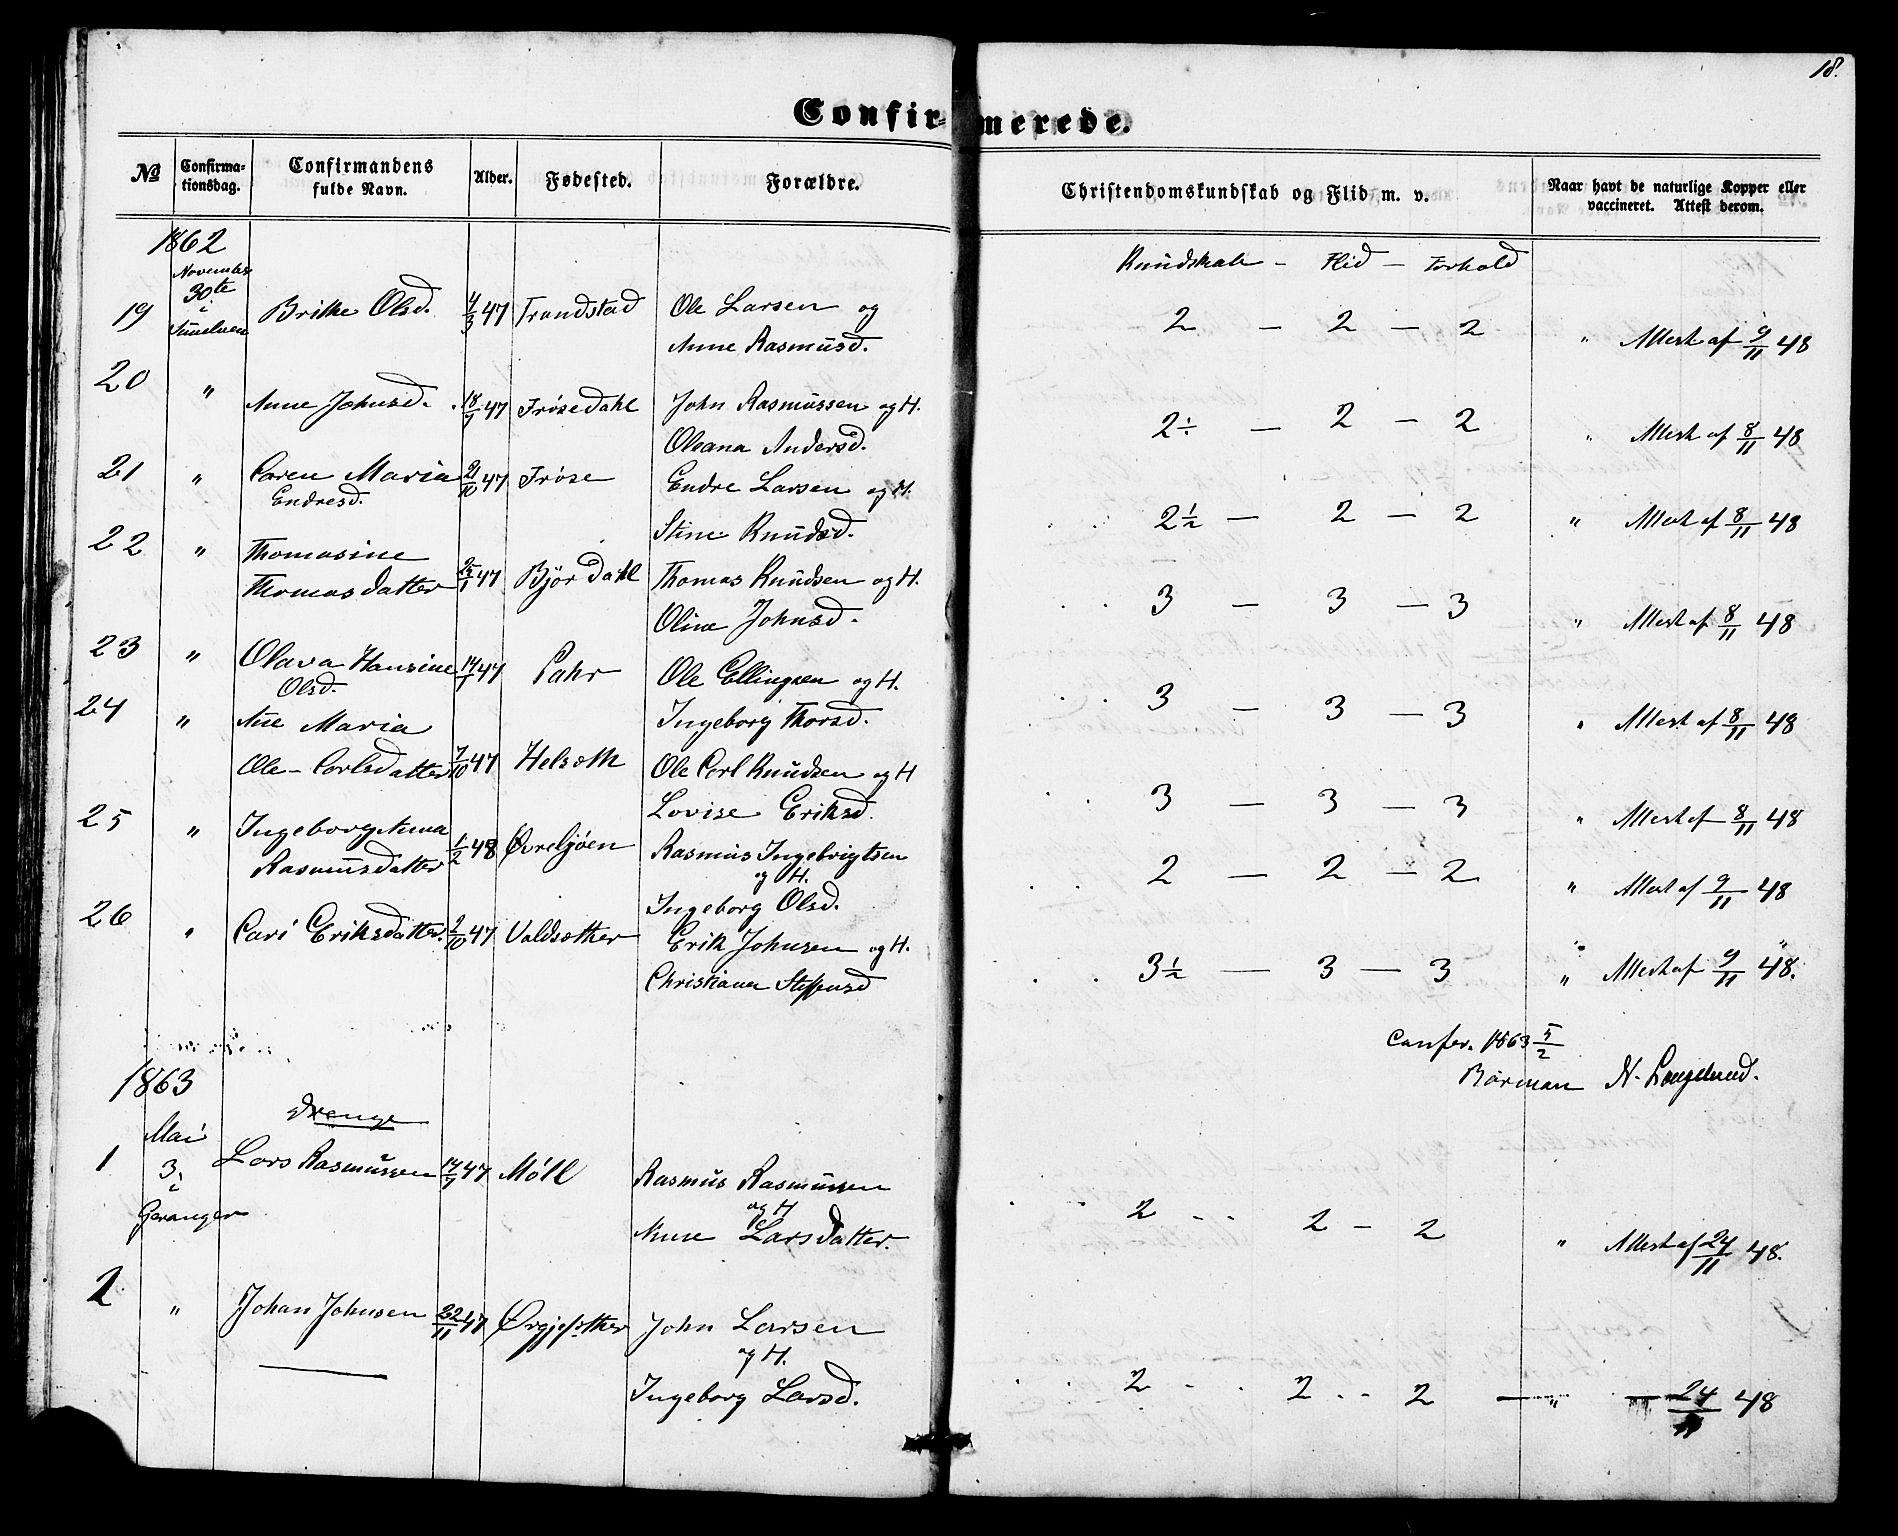 18.
Confirmerede.
No Confirmationsdag. Confirmandens fulde Navn. Alder. Fødested. Forældre. Christendomskundskab og Flid m. v. Naar havt de naturlige Kopper eller vaccineret. Attest derom.
1862
Kundskab - Flid - Forhold
November 30te i Sunelven
19 Brithe Olsd. 4/3 47 Trandstad Ole Larsen og 2 — 2 — 2 " Attest af 9/11 48
Anne Rasmusd.
20 " Anne Johnsd. 18/7 47 Frøsedahl John Rasmussen og H. 2÷ — 2 — 2 " Attest af 8/11 48
Oleana Andersd.
21 " Caren Maria 21/10 47 Frøse Endre Larsen og H. 2½ — 2 — 2 " Attest af 8/11 48
Endresd. Stine Knudsd.
22 " Thomasine
Thomasdatter 25/1 47 Bjørdahl Thomas Knudsen og H. 3 — 3 — 3 " Attest af 8/11 48
Oline Johnsd.
23 " Olava Hansine 14/7 47 Ole Ellingsen og H. 3 — 3 — 3 " Attest af 8/11 48
Olsd. Ingeborg Thorsd.
24 " Ane Maria
Ole-Carlsdatter 7/10 47 Helseth Ole Carl Knudsen og H 3 — 3 — 3 " Attest af 8/11 48
Lovise Eriksd.
25 " Ingeborg Anna
Rasmusdatter 1/2 48 Øvreljøen Rasmus Ingebrigtsen 2 — 2 — 2 " Attest af 9/11 48
og H.
Ingeborg Olsd.
26 " Cari Eriksdatter. 2/10 47 Valdsæther Erik Johnsen og H. 3½ — 3 — 3 " Attest af 9/11 48.
Christiana Steffensd
confer. 1863 5/2
1863 N. Langelund.
Drenge
Mai 3. i Geranger
1 Lars Rasmussen 14/7 47 Møll Rasmus Rasmussen 2 - - 2 - 2 " Attest af 24/11 48.
og H
Anne Larsdatter.
2 " Johan Johnsen 22/11 47 John Larsen 2 - - 2 - - 2 — " — 24/11 48
og H.
Ingeborg Larsd.